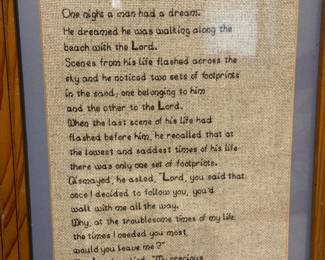 One night a man had a dream.
He dreamed he was walking along the
beach with the Lord.
Scenes from his life flashed across the
sky and he noticed two sets of footprints
in the sand; one belonging to him
and the other to the Lord.
When the last scene of his life had
flashed before him, he recalled that at
the lowest and saddest times of his life
there was only one set of footprints.
Dismayed, he asked, "Lord, you said that
once I decided to follow you, you'd
walk with me all the way.
Why, at the troublesome times of my life
the times I needed you most,
would you leave me?"
"My precious